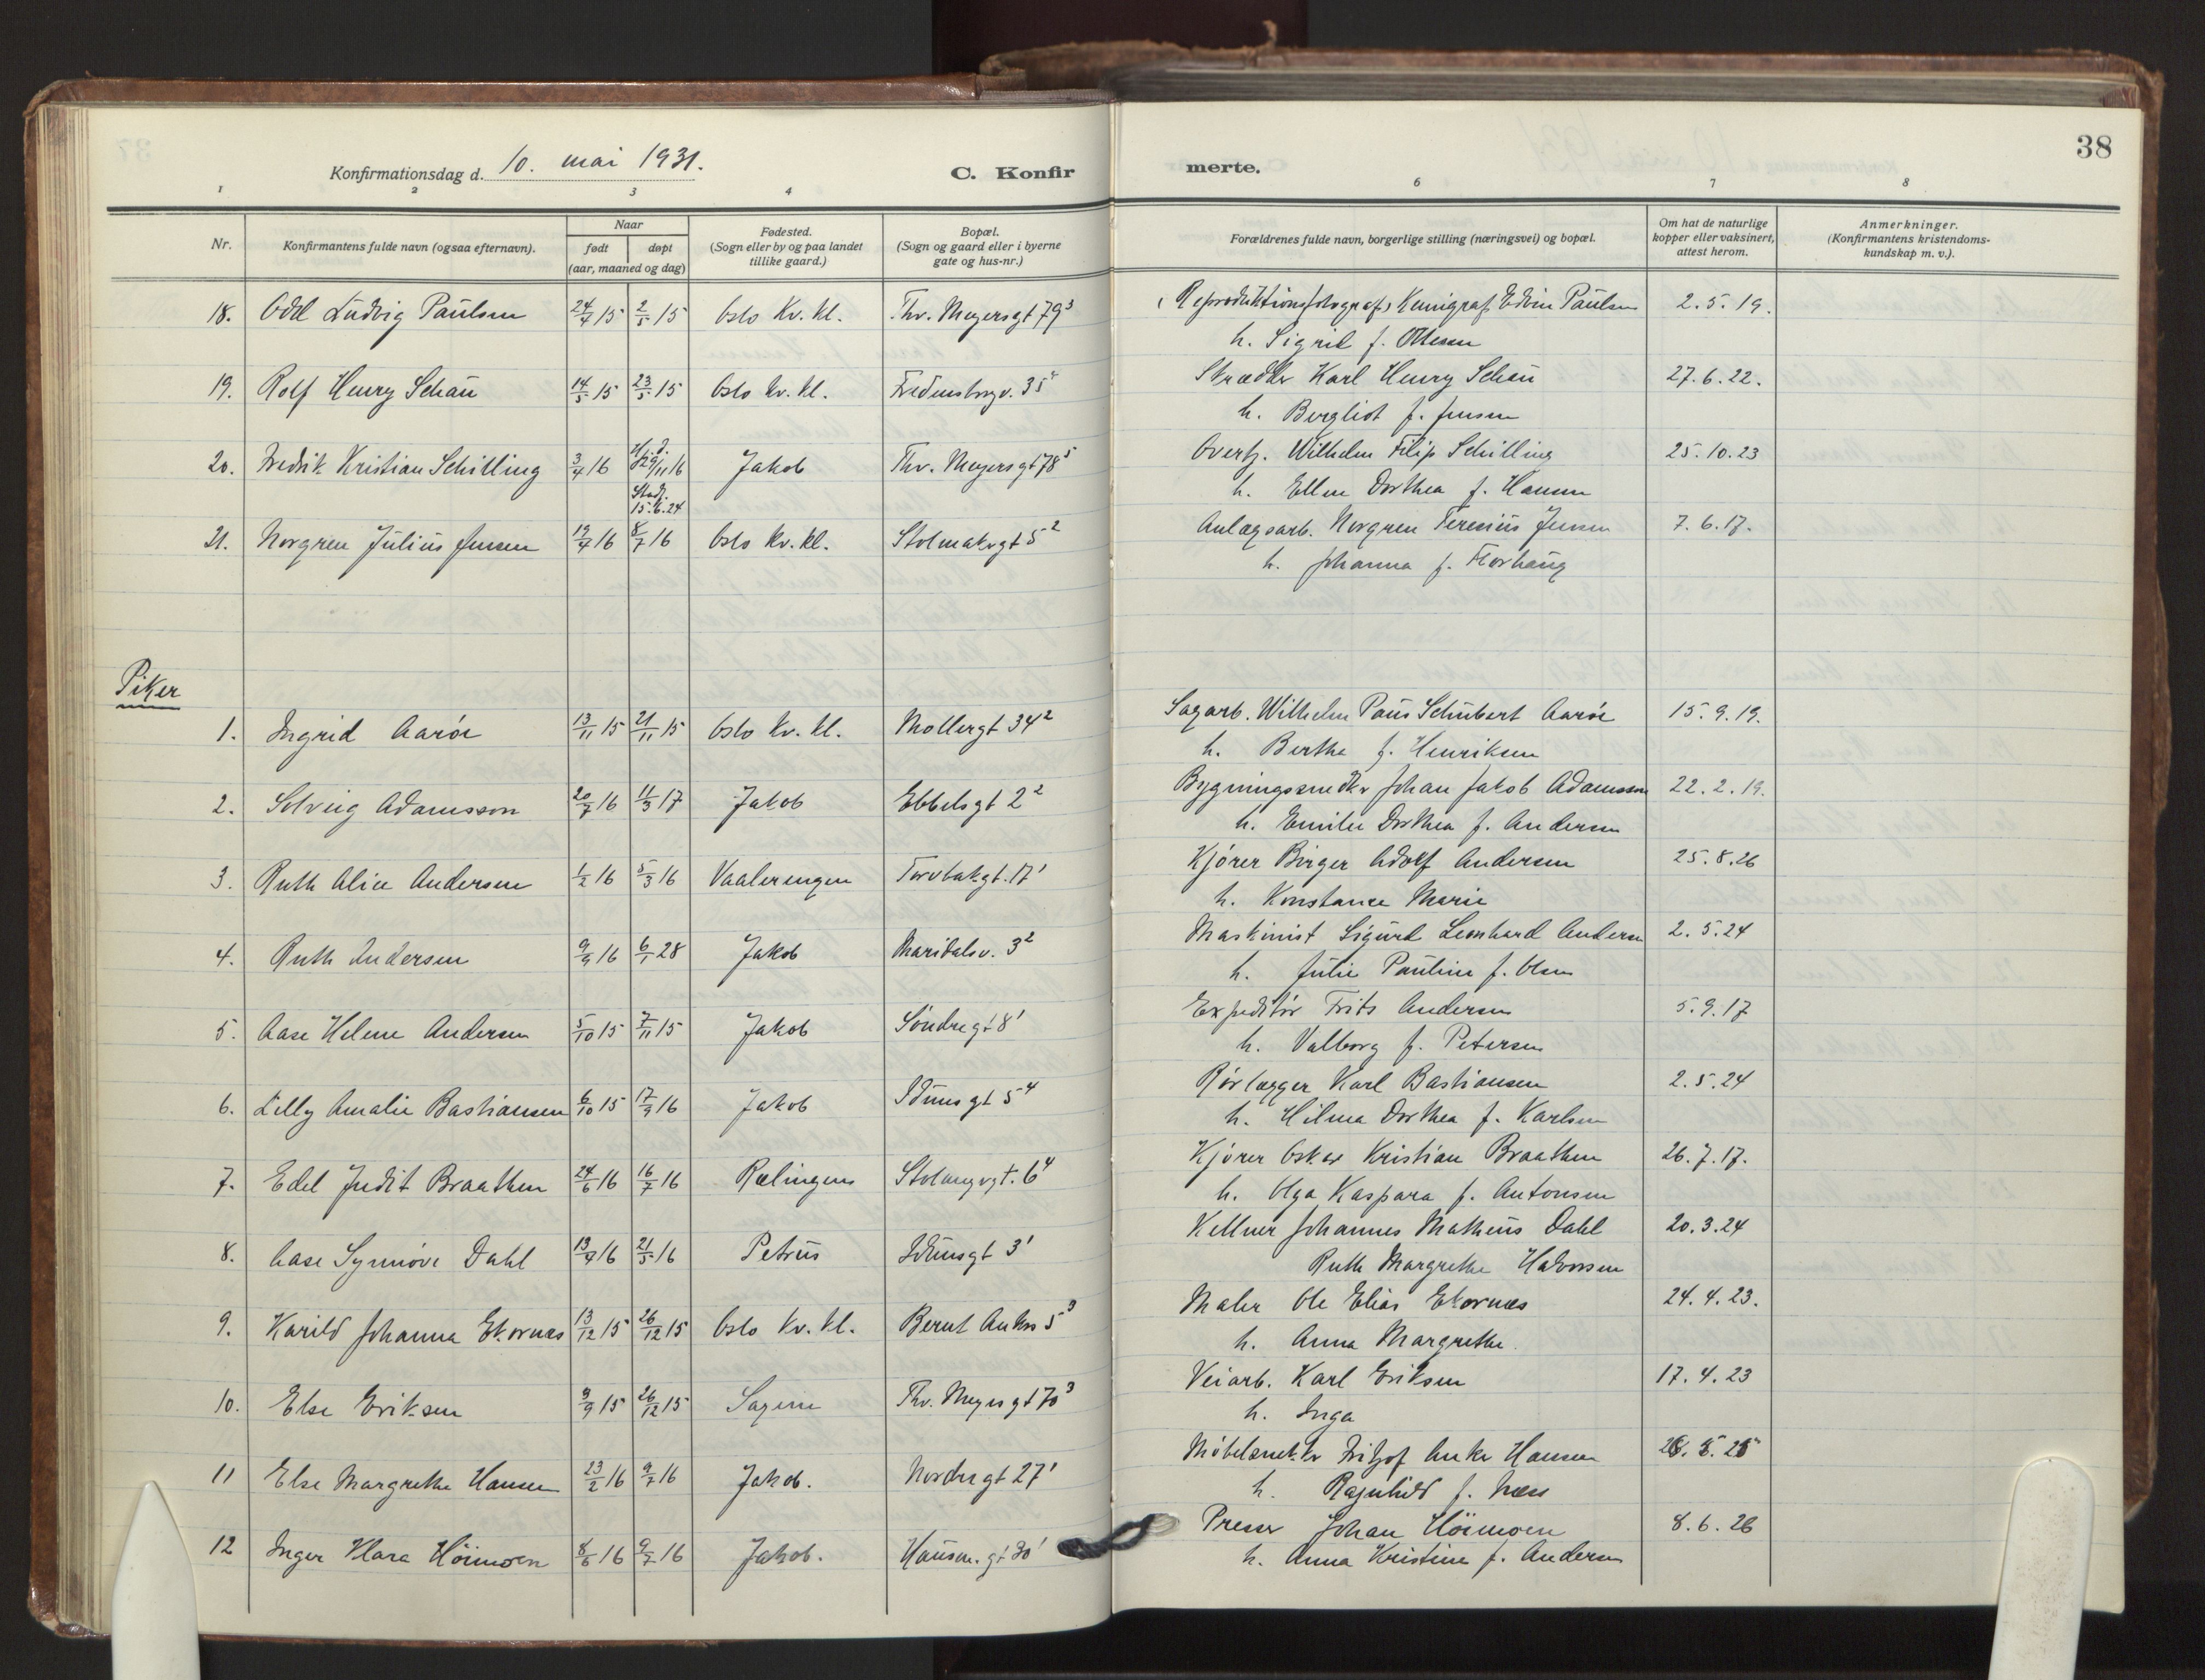 38
Konfirmationsdag d. 10. mai 1931.
C. Konfir
merte.
1 2 3 4 6 7 8
Nr. Konfirmantens fulde navn (ogsaa efternavn). Naar født døpt (aar, maaned og dag) Fødested. (Sogn eller by og paa landet tillike gaard.) Bopæl. (Sogn og gaard eller i byerne gate og hus-nr.) Forældrenes fulde navn, borgerlige stilling (næringsvei) og bopæl. Om hat de naturlige kopper eller vaksinert, attest herom. Anmerkninger. (Konfirmantens kristendomskundskap m. v.).
18. Odd Ludvig Paulsen 24/4 15 2/5 15 Oslo Kv. kl. Thv. Meyersgt 79³ (Reproduktionsfotograf) Kemigraf Edvin Paulsen 2.5.19.
h. Sigrid f. Ottesen
19. Rolf Henry Schau 14/5 15 23/5 15 Oslo kv. kl. Fredensborgv. 35⁴ Skrædder Karl Henry Schau 27.6.22.
h. Bergliot f. Jensen
20. Fredrik Kristian Schilling 3/4 16 Hj.d. 29/11 16 Jakob Thv. Meyersgt 78⁵ Overbj. Wilhelm Filip Schilling 25.10.23
Stadf. 15.6.24
h. Ellen Dorthea f. Hansen
21. Norgren Julius Jensen 19/4 16 8/7 16 Oslo kv. kl. Stolmakergt 5² Anlægsarb. Norgren Teresius Jensen 7.6.17.
h. Johanna f. Florhaug
Piker
1. Ingrid Aarøe 13/11 15 21/11 15 Oslo Kv. kl. Møllergt 34² Sagarb. Wilhelm Paus Schubert Aarøe 15.9.19.
h. Bertha f. Henriksen
2. Solveig Adamsson 20/7 16 11/3 17 Jakob Ebbelsgt 2² Bygningssnedker Johan Jakob Adamsson 22.2.19.
h. Emilie Dorthea f. Andersen
3. Ruth Alice Andersen 1/2 16 5/3 16 Vaalerengen Torvbakgt. 17¹ Kjører Birger Adolf Andersen 25.8.26
h. Konstance Marie
4. Ruth Andersen 9/9 16 6/1 28 Jakob Maridalsv. 3² Maskinist Sigurd Leonhard Andersen 2.5.24
h. Julie Pauline f. Olsen
5. Aase Helene Andersen 5/10 15 7/11 15 Jakob Søndregt 8¹ Expeditør Frits Andersen 5.9.17
h. Valborg f. Petersen
6. Lilly Amalie Bastiansen 6/10 15 17/9 16 Jakob Idunsgt 5⁴ Rørlægger Karl Bastiansen 2.5.24
h. Hilma Dorthea f. Karlsen
7. Edel Judit Braathen 24/6 16 16/7 16 Rælingen Stolmagergt. 6⁴ Kjører Oskar Kristian Braathen 26.7.17.
h. Olga Kaspara f. Antonsen
8. Aase Synnøve Dahl 13/4 16 21/5 16 Petrus Idunsgt 3¹ Kellner Johannes Matheus Dahl 20.3.24
Ruth Margrethe Halvorsen
9. Karild Johanna Ekornæs 13/12 15 26/12 15 Oslo Kv. kl. Bernt Ankers 5³ Maler Ole Elias Ekornæs 24.4.23.
h. Anna Margrethe
10. Else Eriksen 9/9 15 26/12 15 Sagene Thv. Meyersgt 70³ Veiarb. Karl Eriksen 17.4.23
h. Inga
11 Else Margrethe Hansen 23/2 16 9/7 16 Jakob. Nordregt 27¹ Møbelsnekker Fritjof Anker Hansen 28.5.25
h. Ragnhild f. Næss
12 Inger Klara Höimoen 8/6 16 9/7 16 Jakob. Hausm. gt 30¹ Presser Johan Höimoen 8.6.26
h. Anna Kristine f. Andersen